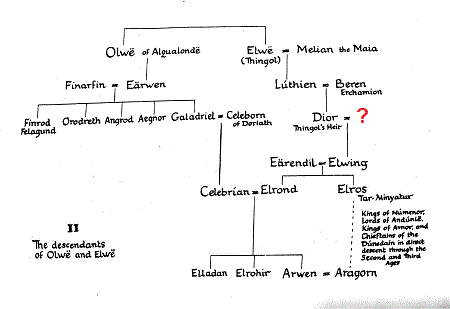 Olwë of Alqualondë
Elwë = Melian the Maia
(Thingol)
Finarfin = Eärwen
Lúthien = Beren
Erchamion
Finrod
Felagund
Orodreth Angrod Aegnor Galadriel = Celeborn
of Doriath
Dior = ?
Thingol's Heir
Eärendil = Elwing
Celebrían = Elrond
Elros
Tar-Minyatur
Kings of Númenor,
Lords of Andúnië,
Kings of Arnor, and
Chieftains of the
Dúnedain in direct
descent through the
Second and Third
Ages
II
The descendants
of Olwë and Elwë
Elladan Elrohir Arwen = Aragorn